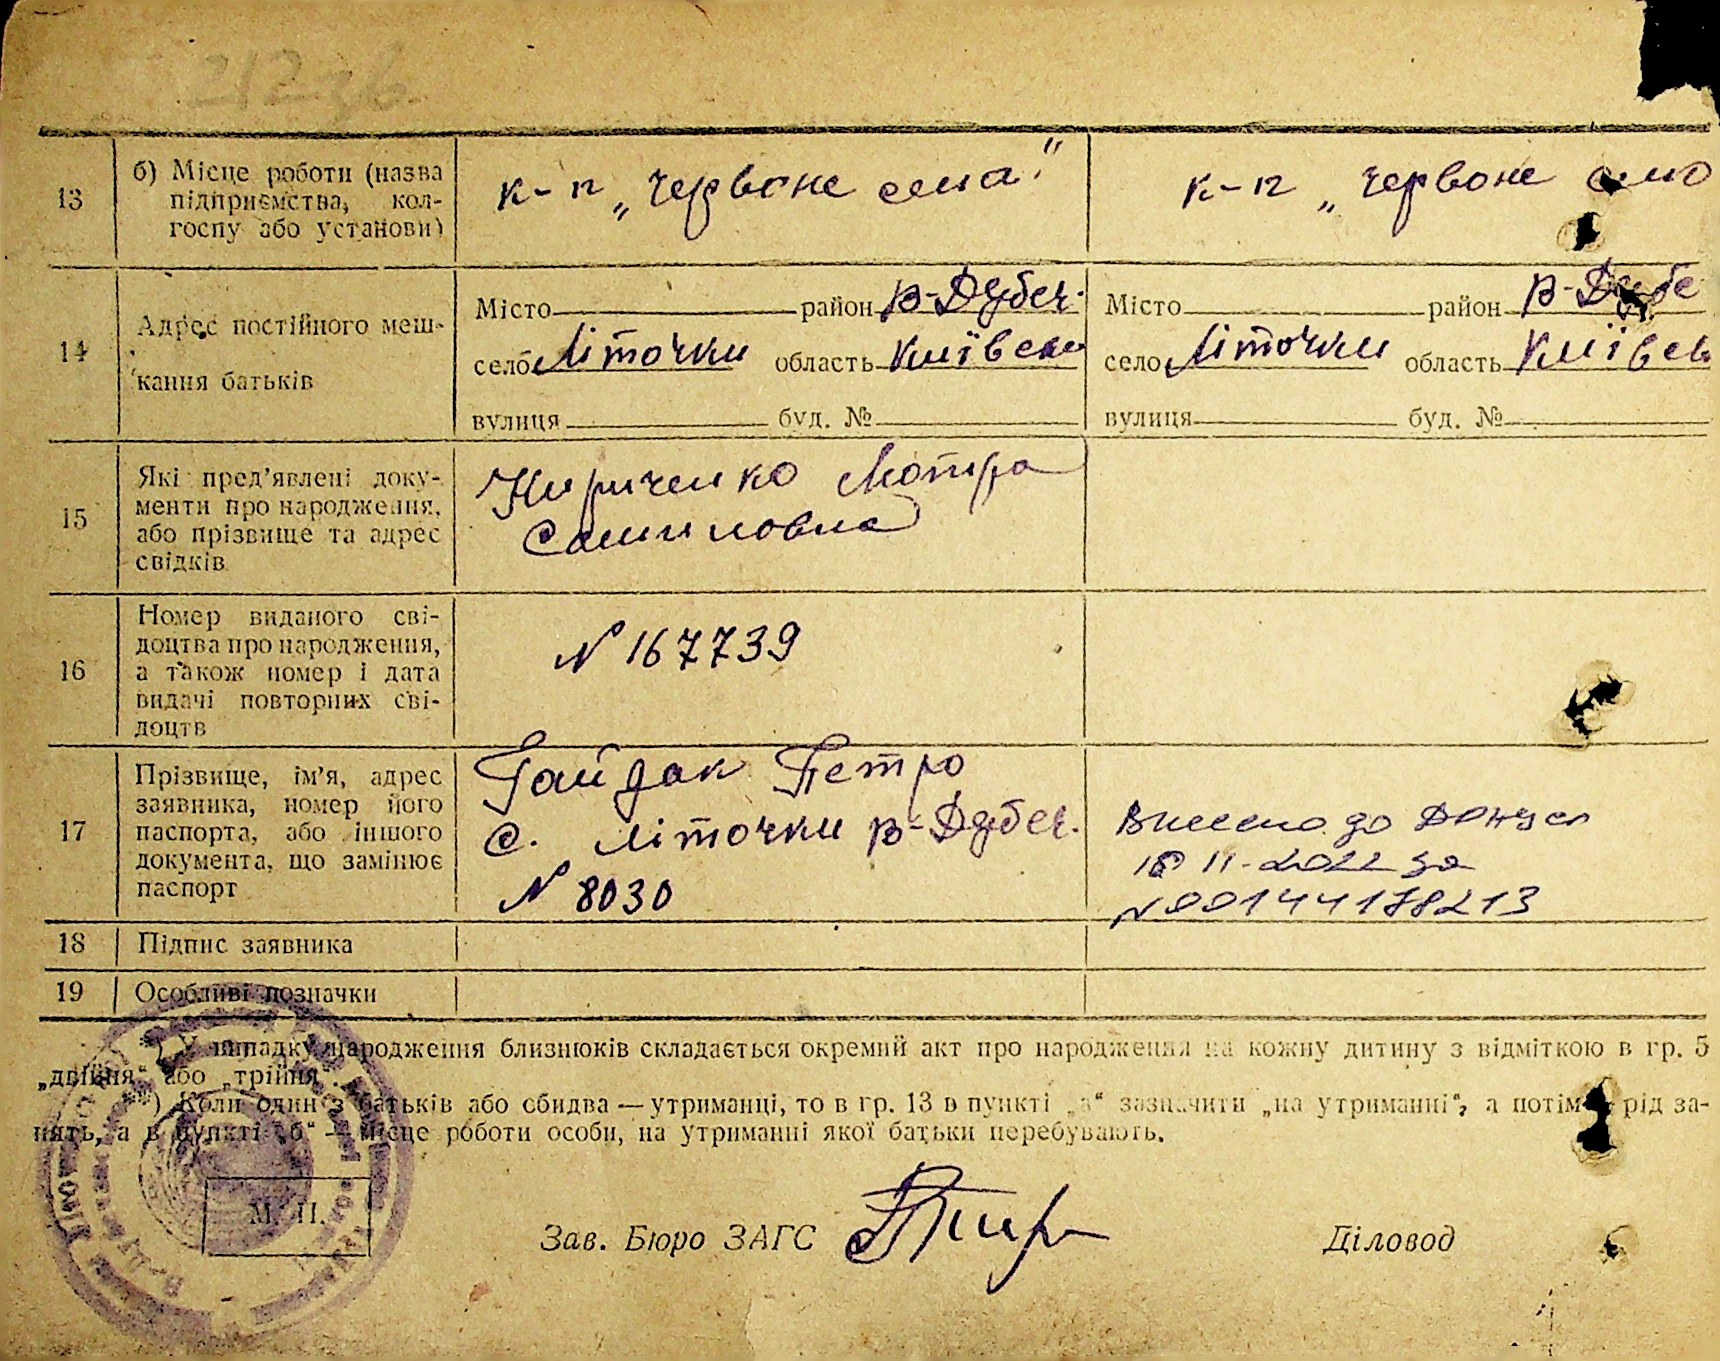 21236
13
б) Місце роботи (назва
підприємства, кол-
госпу або установи)
к-п „Червоне село"
к-п „Червоне село
14
Адрес постійного меш-
кання батьків
Місто район В-Дубеч.
село Літочки область Київськ
вулиця буд. №
Місто район В-Дубе
село Літочки область Київсь
вулиця буд. №
15
Які пред'явлені доку-
менти про народження,
або прізвище та адрес
свідків
Кириченко Мотря
Самиловна
16
Номер виданого сві-
доцтва про народження,
а також номер і дата
видачі повторних сві-
доцтв
N 167739
17
Прізвище, ім'я, адрес
заявника, номер його
паспорта, або іншого
документа, що замінює
паспорт
Гайдак Петро
с. Літочки В-Дубеч.
N 8030
Внесено до
18 11-2022 за
N 00144178213
18
Підпис заявника
19
Особливі позначки
*) У випадку народження близнюків складається окремий акт про народження на кожну дитину з відміткою в гр. 5
„двійня" або „трійня".
**) Коли один з батьків або обидва — утриманці, то в гр. 13 в пункті „а" зазначити „на утриманні", а потім рід за-
нять, а в пункті „б" — місце роботи особи, на утриманні якої батьки перебувають.
М. П.
Зав. Бюро ЗАГС
Діловод